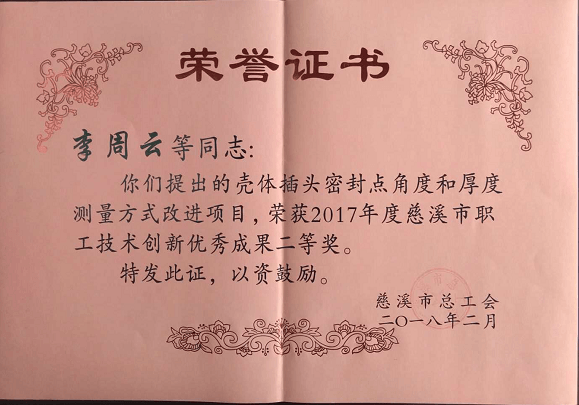 荣誉证书
李周云等同志:
你们提出的壳体插头密封点角度和厚度
测量方式改进项目,荣获2017年度慈溪市职
工技术创新优秀成果二等奖。
特发此证,以资鼓励。
慈溪市总工会
二〇一八年二月